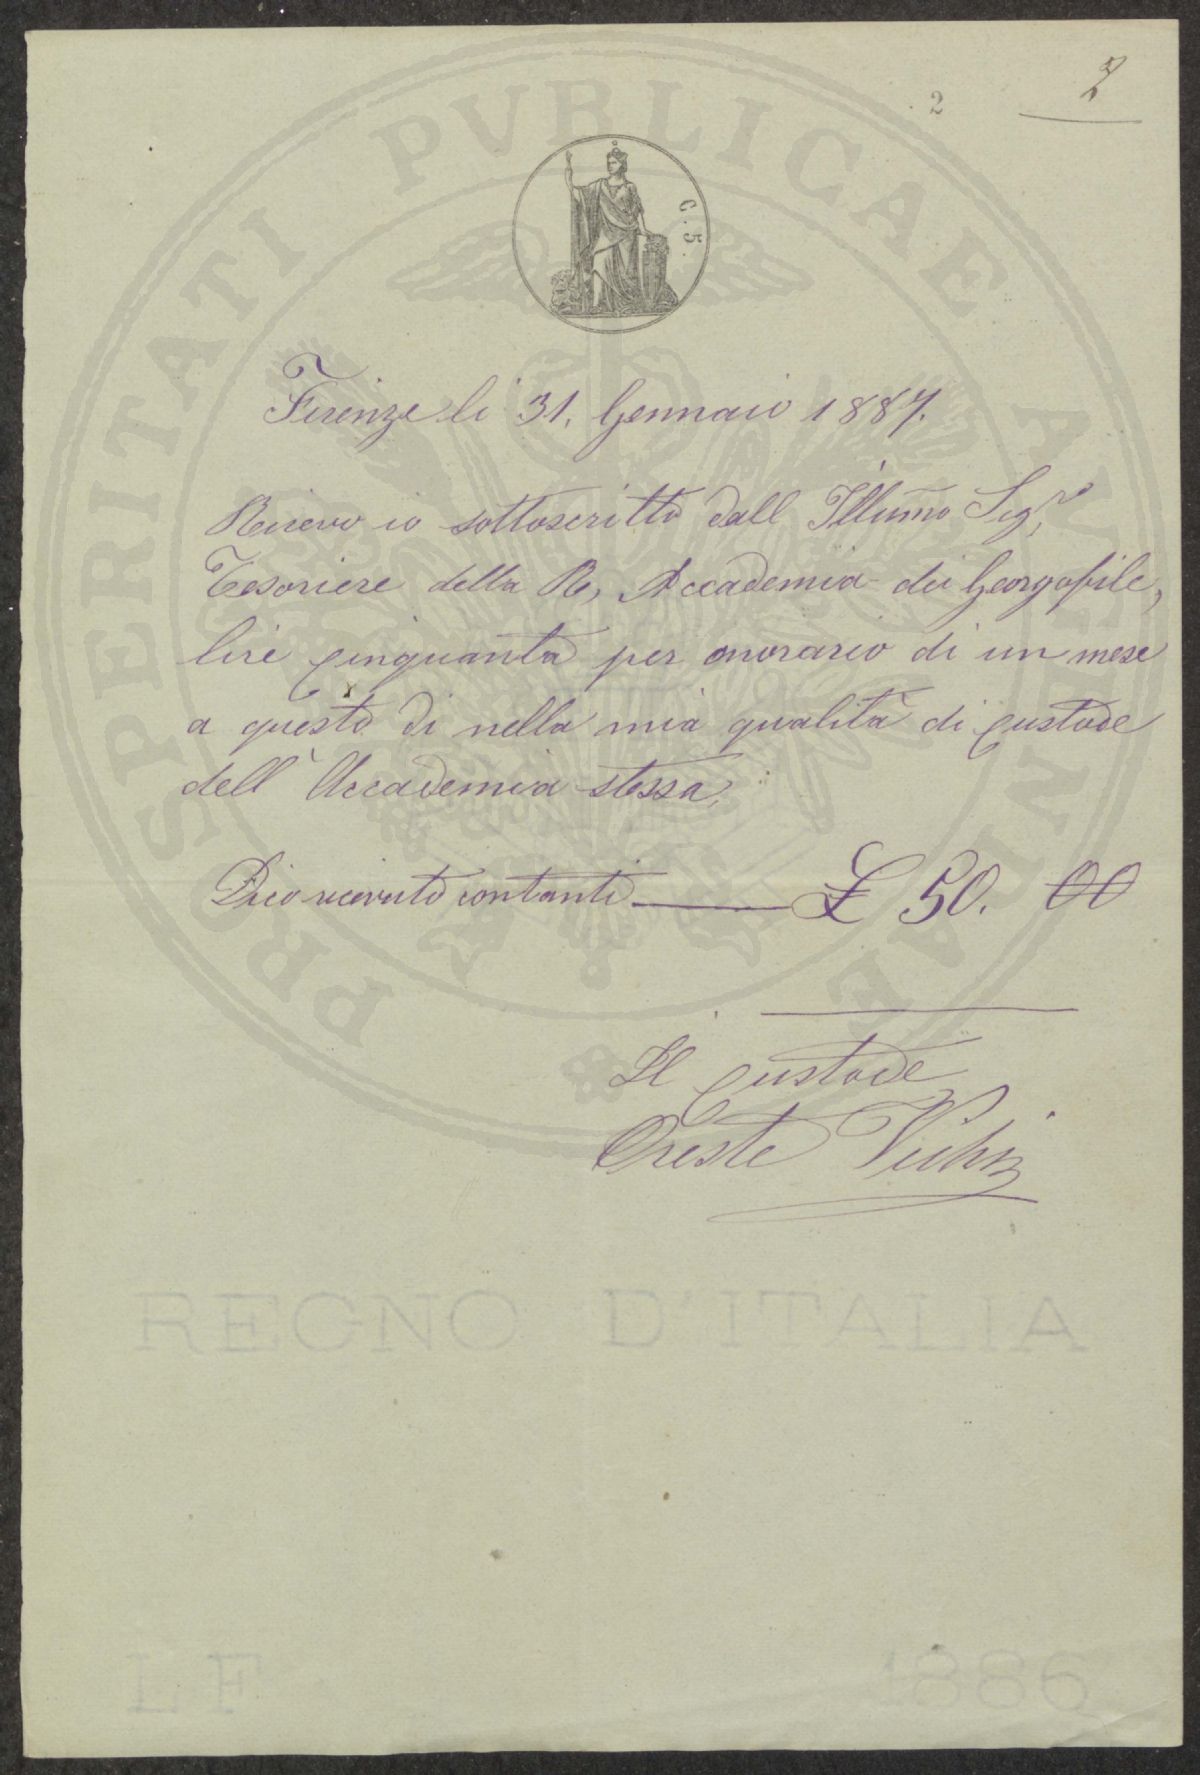 2
2
PROSPERITATI PVBLICAE AVGENDAE
C. 5.
Firenze li 31. Gennaio 1887.
Ricevo io sottoscritto dall Illumo Sigr
Tesoriere della R, Accademia dei Georgofile,
lire cinquanta per onorario di un mese
a questo dì nella mia qualità di custode
dell' Accademia stessa.
Dico ricevuto contanti £ 50. 00
Il custode
Oreste
REGNO D'ITALIA
LF 1886